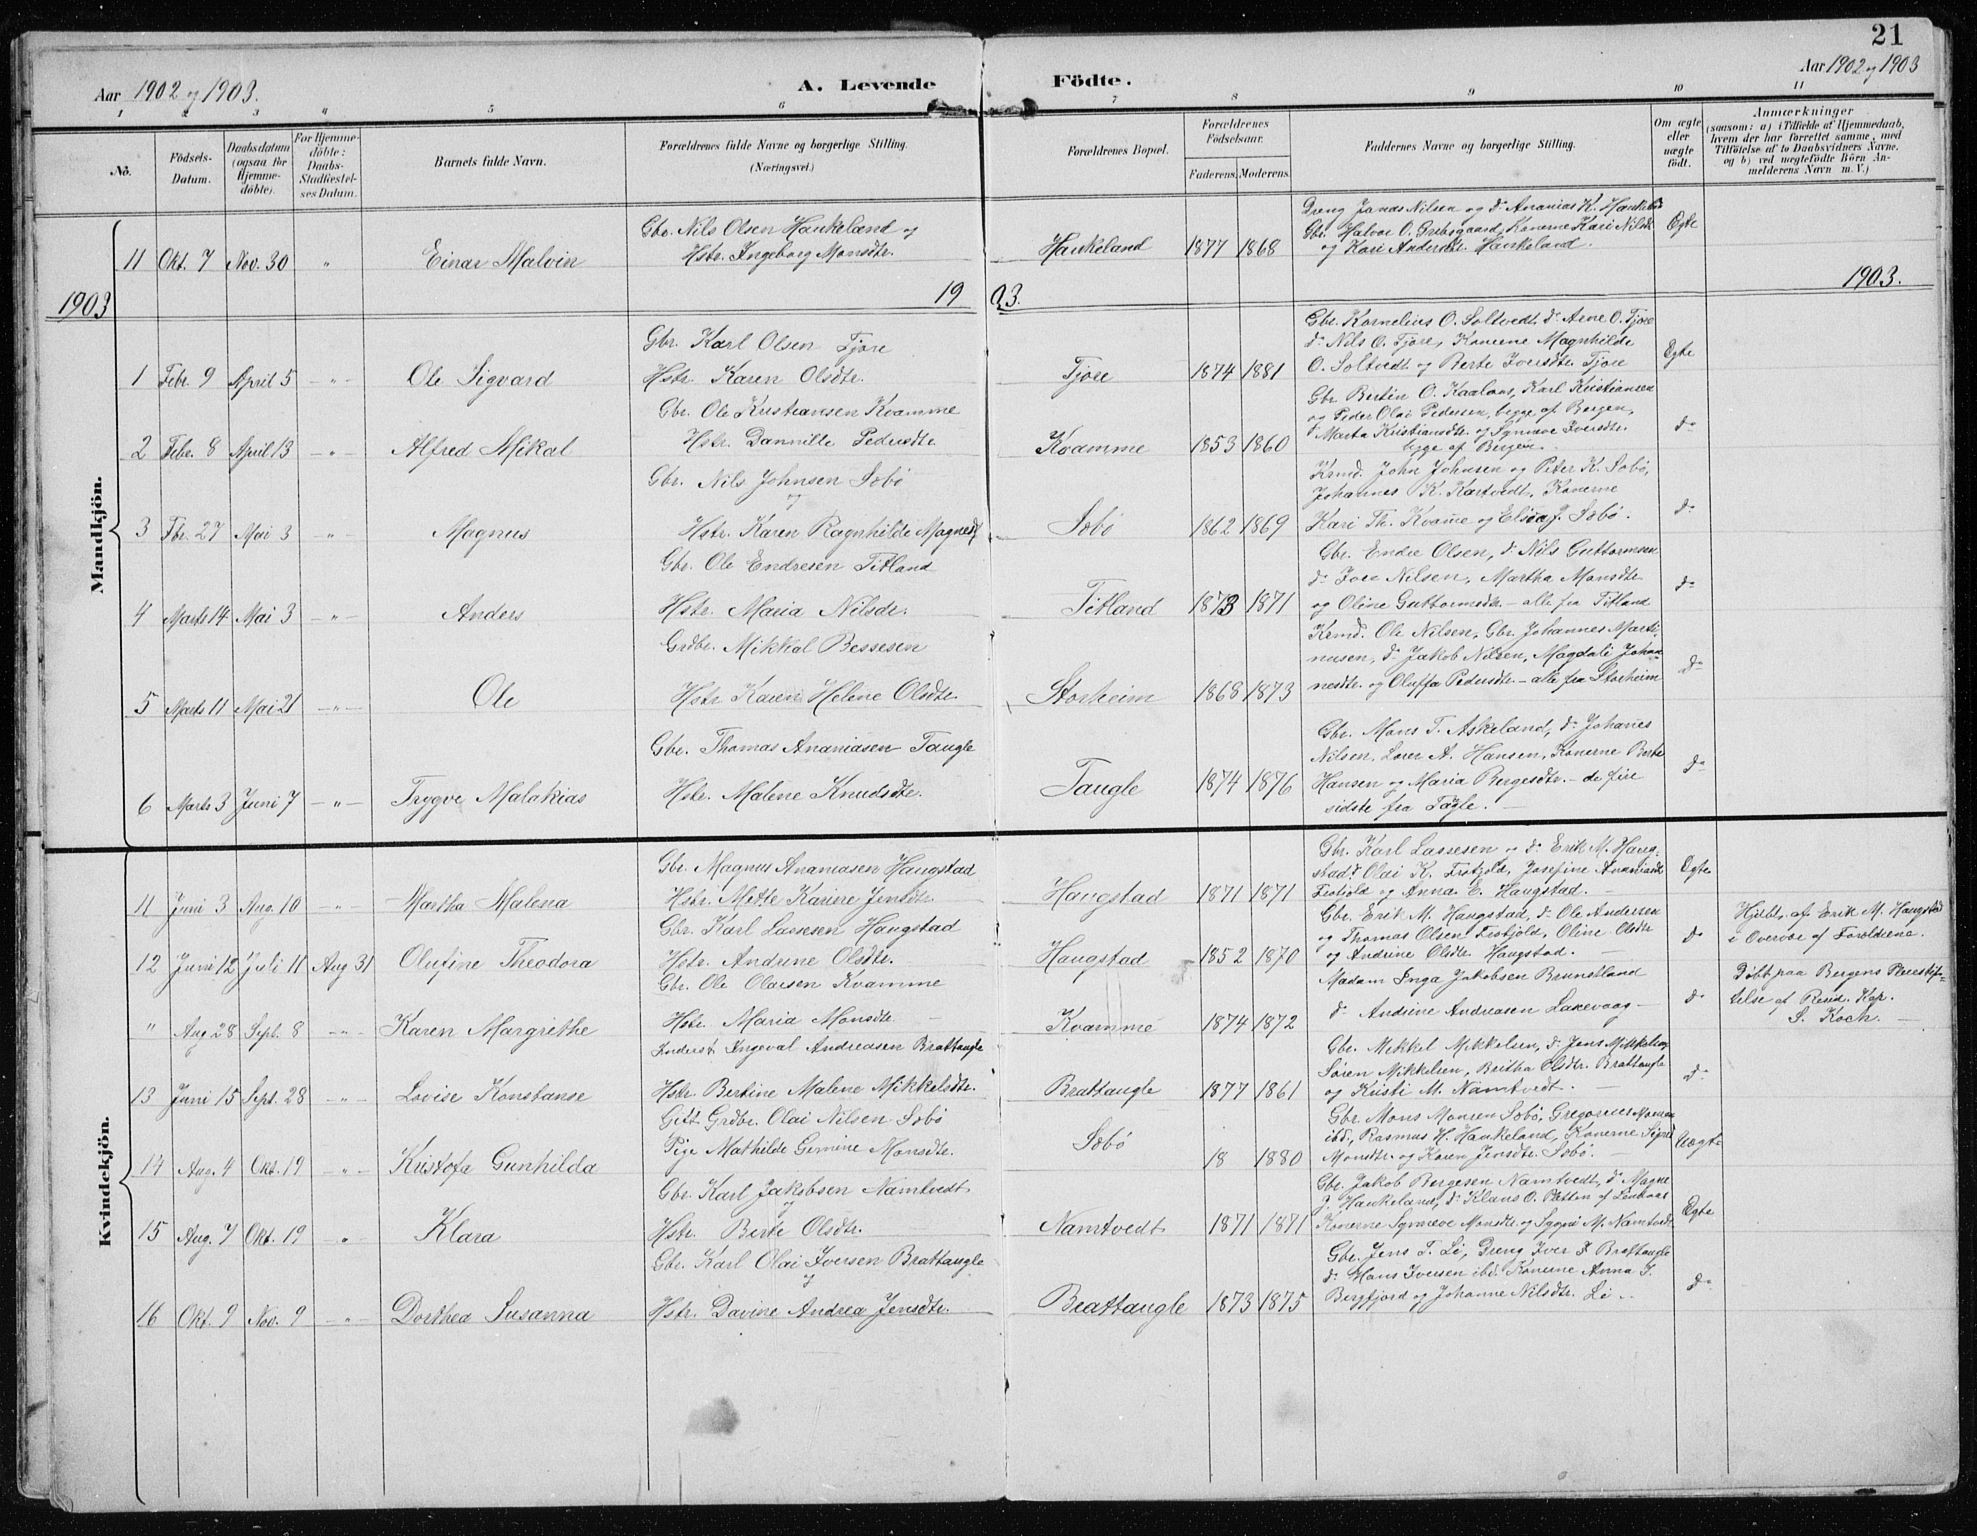 21
Aar 1902 og 1903.
A. Levende
Födte.
Aar 1902 og 1903
1 2 3 4 5 6 7 8 9 10 11
No.
Födsels-Datum.
Daabsdatum (ogsaa for Hjemme-döbte).
For Hjemme-döbte: Daabs-Stadfæstel-ses Datum.
Barnets fulde Navn.
Forældrenes fulde Navne og borgerlige Stilling. (Næringsvei)
Forældrenes Bopæl.
Forældrenes Födselsaar.
Faderens. Moderens.
Faddernes Navne og borgerlige Stilling.
Om ægte eller uægte födt.
Anmærkninger
(saasom: a) i Tilfælde af Hjemmedaab, hvem der har forrettet samme, med Tilföielse af to Daabsvidners Navne, og b) ved uægtefödte Börn Anmelderens Navn m. V.)
Mandkjön.
Gbr. Nils Olsen Haukeland og
11 Okt. 7 Nov. 30 " Einar Malvin Hstr. Ingeborg Monsdtr. Haukeland 1877 1868
Dreng Jonas Nilsen og do Ananias K. Haukeland
Gbr. Halvor O. Konerne Kari Nilsdtr
og Kari Andersdtr. Haukeland. Egte
1903 1903. 1903.
Gbr. Karl Olsen Tjore
1 Febr. 9 April 5 " Ole Sigvard Hstr. Karen Olsdtr. Tjore 1874 1881
Gbr. Kornelius O. Soltvedt, do Arne O. Tjore
do Nils O. Tjore, Konerne Magnhilde
O. Soltvedt og Berte Iversdtr. Tjore Egte
Gbr. Ole Kristiansen Kvamme
2 Febr. 8 April 13 " Alfred Mikal Hstr. Dannille Pedersdtr Kvamme 1853 1860
Gbr. Bertin O. Kaalaas, Karl Kristiansen
og Peder Olai Pedersen, begge af Bergen,
Marta Kristiansdtr. og Synneve Iversdtr.
begge af Bergen. do
Gbr. Nils Johnsen Söbö
og
3 Fbr. 27 Mai 3 " Magnus Hstr. Karen Ragnhilde Magnesdt Söbö 1862 1869
Krmd. John Johnsen og Peter K. Söbö,
Johannes K. Kartvedt, Konerne
Kari Th. Kvame og Elisa J. Söbö. do
Gbr. Ole Endresen Titland
4 Marts 14 Mai 3 " Anders Hstr. Maria Nilsdr. Titland 1873 1871
Gbr. Endre Olsen, do Nils Guttormsen
do Iver Nilsen, Martha Monsdtr
og Oline Guttormsdtr. - alle fra Titland do
Grdbr. Mikkal Bessesen
5 Marts 11 Mai 21 " Ole Hstr Karen Helene Olsdtr. Storheim 1868 1873
Krmd. Ole Nilsen, Gbr. Johannes Marti-
nusen, do Jakob Nilsen, Magdali Johan-
nesdtr. og Oluffa Pedersdtr. - alle fra Storheim do
Gbr. Thomas Ananiasen Taugle
6 Marts 3 Juni 7 " Trygve Malakias Hstr. Malene Knudsdtr. Taugle 1874 1876
Gbr. Mons T. Askeland, do Johanes
Nilsen, Lærer A. Hansen, Konerne Berte
Hansen og Maria Bergesdtr. - de fire
sidste fra Tagle. do
Kvindekjön.
Gbr. Magnus Ananiasen Haugstad
11 Juni 3 Aug. 10 " Martha Malena Hstr. Mette Karine Jensdtr. Haugstad 1871 1871
Gbr. Karl Lassesen og do Erik M. Haug-
stad do Olai K. Frotjold, Josefine Ananiasdtr
Frotjold og Anna E. Haugstad. Egte
Gbr. Karl Lassesen Haugstad
12 Juni 12 Juli 11 Aug 31 Olufine Theodora Hstr. Andrine Olsdtr. Haugstad 1852 1870
Gbr. Erik M. Haugstad, do Ole Andersen
og Thomas Olsen Frotjold, Oline Olsdtr
og Andrine Olsdtr. Haugstad. do
Hjdbt. af Erik M. Haugstad
i Overvær af Forældrene.
Gbr. Ole Olaisen Kvamme
" Aug 28 Sept. 8 " Karen Margrethe Hstr. Maria Monsdtr. Kvamme 1874 1872
Madam Inga Jakobsen Brunstland
do Andrine Andreasen Laxevaag do
Döbt paa Bergens Pleiestif-
telse af Resid. Kap.
S. Koch.
Inderst Ingeval Andreasen Brattaugle
13 Juni 15 Sept. 28 " Lovise Konstanse Hstr. Bertine Malene Mikkelsdtr. Brattaugle 1877 1861
Gbr. Mikkel Mikkelsen, do Jens Mikkelsen
Sören Mikkelsen, Britha Olsdtr. Brattaugle
og Kristi M. Namtvedt. do
Gift Grdbr. Olai Nilsen Söbö
14 Aug. 4 Okt. 19 " Kristofa Gunhilda Pige Mathilde Gemine Monsdtr. Söbö 18 1880
Gbr. Mons Monsen Söbö, Gregorius Monsen
ibd., Rasmus H. Haukeland, Konerne Sigrid
Monsdtr. og Karen Jensdtr. Söbö. Uægte
Gbr. Karl Jakobsen Namtvedt
og
15 Aug. 7 Okt. 19 " Klara Hstr. Berte Olsdtr. Namtvedt 1871 1871
Gbr. Jakob Bergesen Namtvedt, do Magne
J. Haukeland, do Klaus O. af
Konerne Synneve Monsdtr og M. Namtvedt. Egte
Gbr. Karl Olai Iversen Brattaugle
og
16 Okt. 9 Nov. 9 " Dorthea Susanna Hstr. Davine Andrea Jensdtr. Brattaugle 1873 1875
Gbr. Jens T. Li, Dreng Iver J Brattaugle
do Mons Iversen ibd. Konerne Anna J.
Bergfjord og Johanne Nilsdtr. Li. do